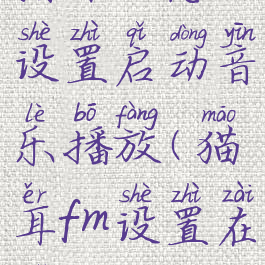 shè zhì qǐ dòng yīn
设置启动音
lè bō fàng māo
乐播放(猫
ěr shè zhì zài
耳fm设置在